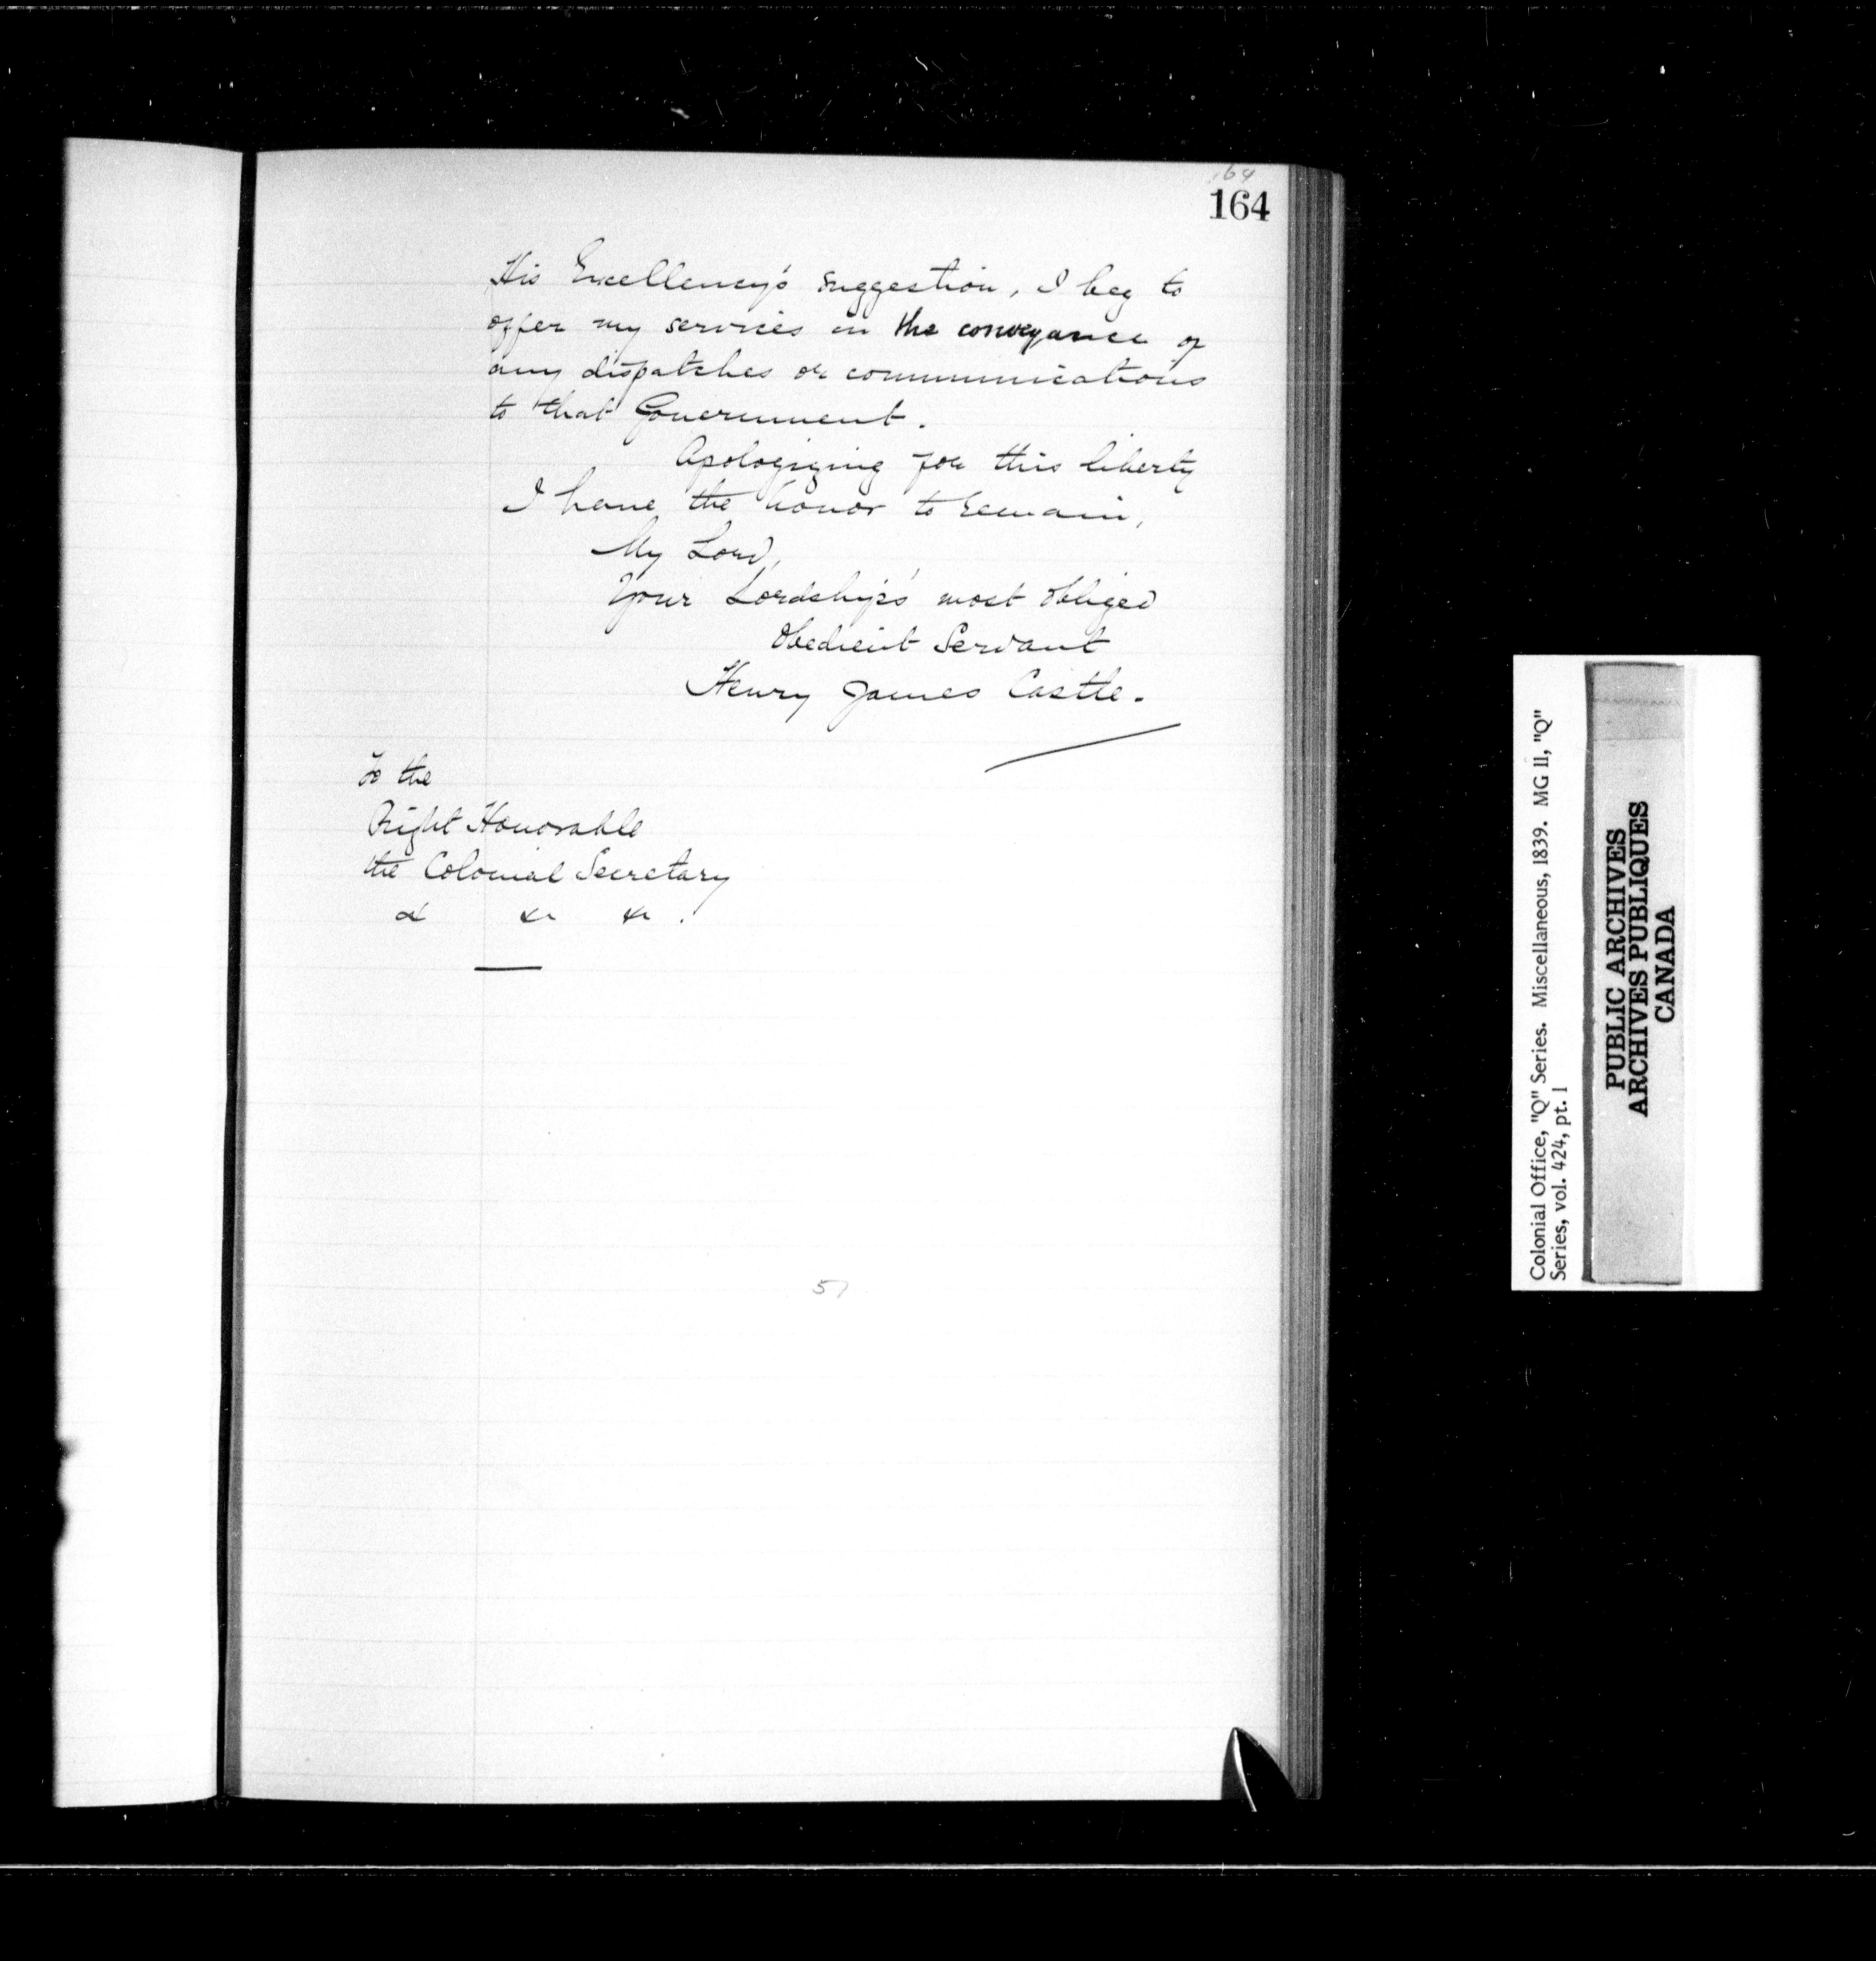 164
164
His Excellency's suggestion, I beg to
offer my services in the conveyance of
any dispatches or communications
to that Government.
Apologizing for this liberty
I have the honor to remain,
My Lord,
Your Lordship's most obliged
Obedient Servant
Henry James Castle.
To the
Right Honorable
the Colonial Secretary
&c &c &c.
57
Colonial Office, "Q" Series. Miscellaneous, 1839. MG 11, "Q"
Series, vol. 424, pt. 1
PUBLIC ARCHIVES
ARCHIVES PUBLIQUES
CANADA